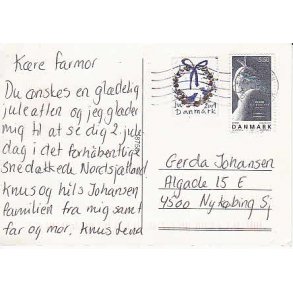 Kære farmor
Du ønskes en glædelig
juleaften og jeg glæder
mig til at se dig 2. jule-
dag i det forhåbentlige
snedækkede Nordsjælland
Knus og hils Johansen
familien fra mig samt
far og mor. Knus
Jul
Danmark
5.50
DANMARK
Gerda Johansen
Algade 15 E
4500 Nykøbing Sj